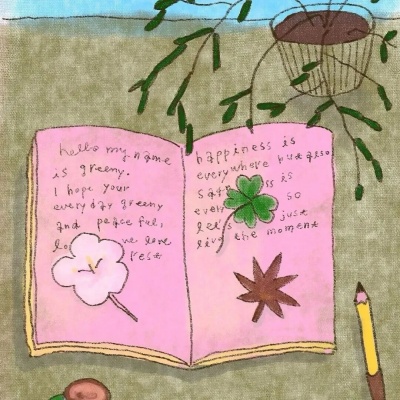 hello my name
is greeny.
I hope your
everyday greeny
and peaceful,
love
rest
happiness is
everywhere but also
is
so
let's just
live the moment